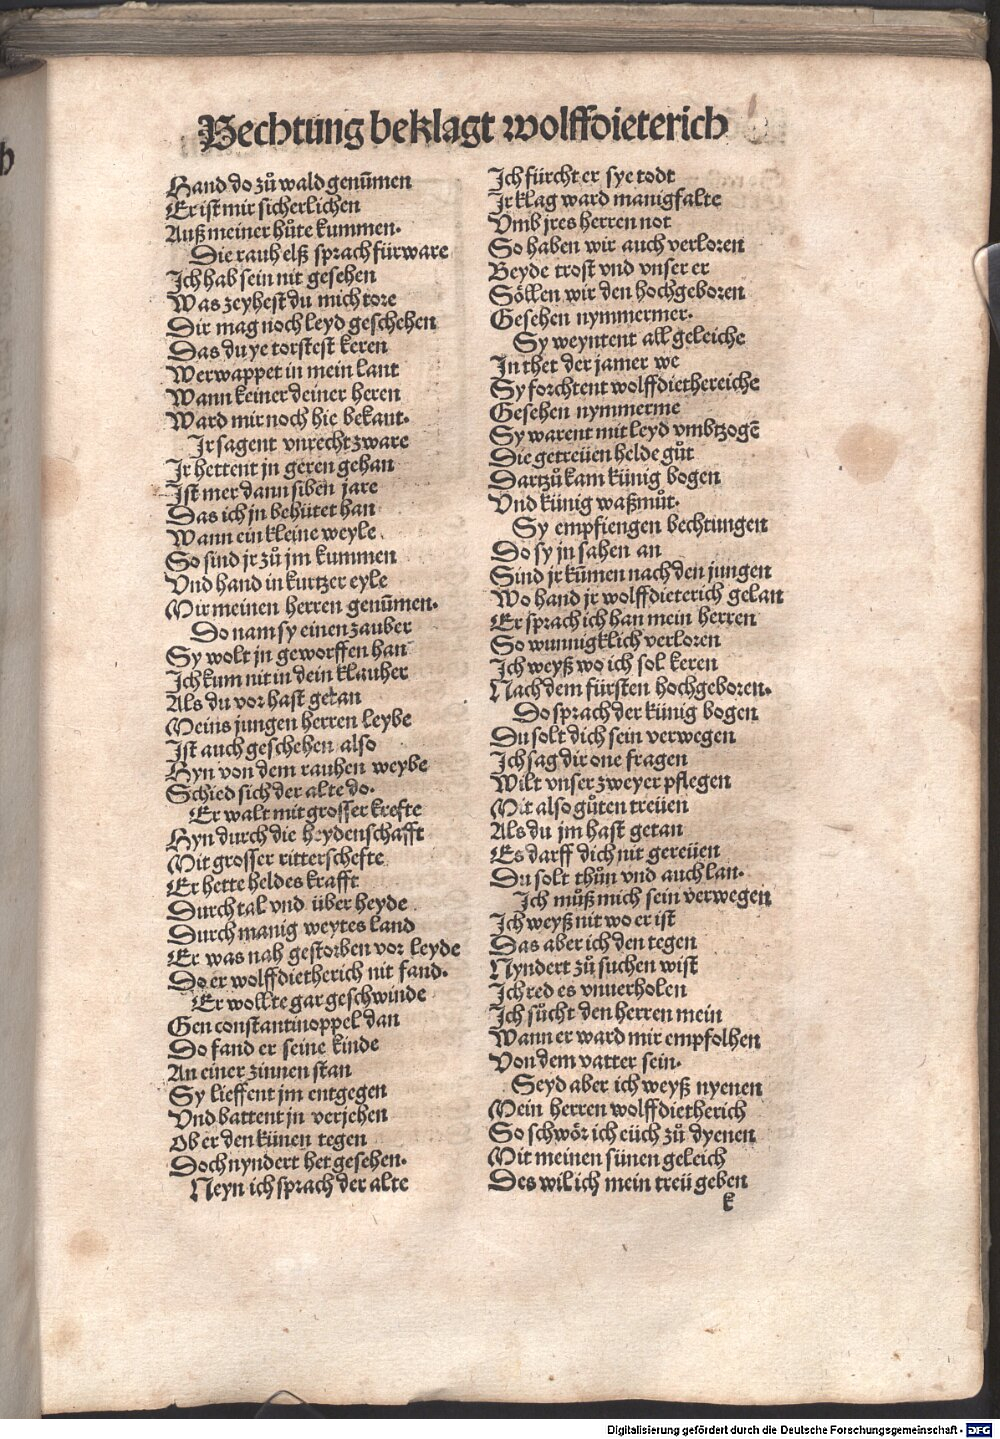 Bechtung beklagt wolffdieterich
Hand do zů wald genūmen
Er ist mir sicherlichen
Auß meiner hůte kummen.
Die rauh elß sprach fürware
Ich hab sein nit gesehen
Was zeyhest du mich tore
Dir mag noch leyd geschehen
Das du ye torstest keren
Werwappet in mein lant
Wann keiner deiner heren
Ward mir noch hie bekant.
Ir sagent vnrecht zware
Ir hettent jn geren gehan
Ist mer dann siben jare
Das ich jn behütet han
Wann ein kleine weyle
So sind jr zů jm kummen
Vnd hand in kurtzer eyle
Mir meinen herren genūmen.
Do nam sy einen zauber
Sy wolt jn geworffen han
Ich kum nit in dein klauher
Als du vor hast getan
Meins jungen herren leybe
Ist auch geschehen also
Hyn von dem rauhen weybe
Schied sich der alte do.
Er walt mit grosser krefte
Hyn durch die heydenschafft
Mit grosser ritterschefte
Er hette heldes krafft
Durch tal vnd über heyde
Durch manig weytes land
Er was nah gestorben vor leyde
Do er wolffdietherich nit fand.
Er wollte gar geschwinde
Gen constantinoppel dan
Do fand er seine kinde
An einer zinnen stan
Sy lieffent jm entgegen
Vnd battent jn verjehen
Ob er den künen tegen
Doch nyndert het gesehen.
Neyn ich sprach der alte
Ich fürcht er sye todt
Ir klag ward manigfalte
Vmb jres herren not
So haben wir auch verloren
Beyde trost vnd vnser er
Söllen wir den hochgeboren
Gesehen nymmermer.
Sy weyntent all geleiche
In thet der jamer we
Sy forchtent wolffdiethereiche
Gesehen nymmerme
Sy warent mit leyd vmbtzogē
Die getreüen helde gůt
Dartzů kam künig bogen
Vnd künig waßmůt.
Sy empfiengen bechtungen
Do sy jn sahen an
Sind jr kūmen nach den jungen
Wo hand jr wolffdieterich gelan
Er sprach ich han mein herren
So wunnigklich verloren
Ich weyß wo ich sol keren
Nach dem fürsten hochgeboren.
Do sprach der künig bogen
Du solt dich sein verwegen
Ich sag dir one fragen
Wilt vnser zweyer pflegen
Mit also gůten treüen
Als du jm hast getan
Es darff dich nit gereüen
Du solt thůn vnd auch lan.
Ich můß mich sein verwegen
Ich weyß nit wo er ist
Das aber ich den tegen
Nyndert zů suchen wist
Ich red es vnuerholen
Ich sůcht den herren mein
Wann er ward mir empfolhen
Von dem vatter sein.
Seyd aber ich weyß nyenen
Mein herren wolffdietherich
So schwör ich eüch zů dyenen
Mit meinen sünen geleich
Des wil ich mein treü geben
k
Digitalisierung gefördert durch die Deutsche Forschungsgemeinschaft - DFG